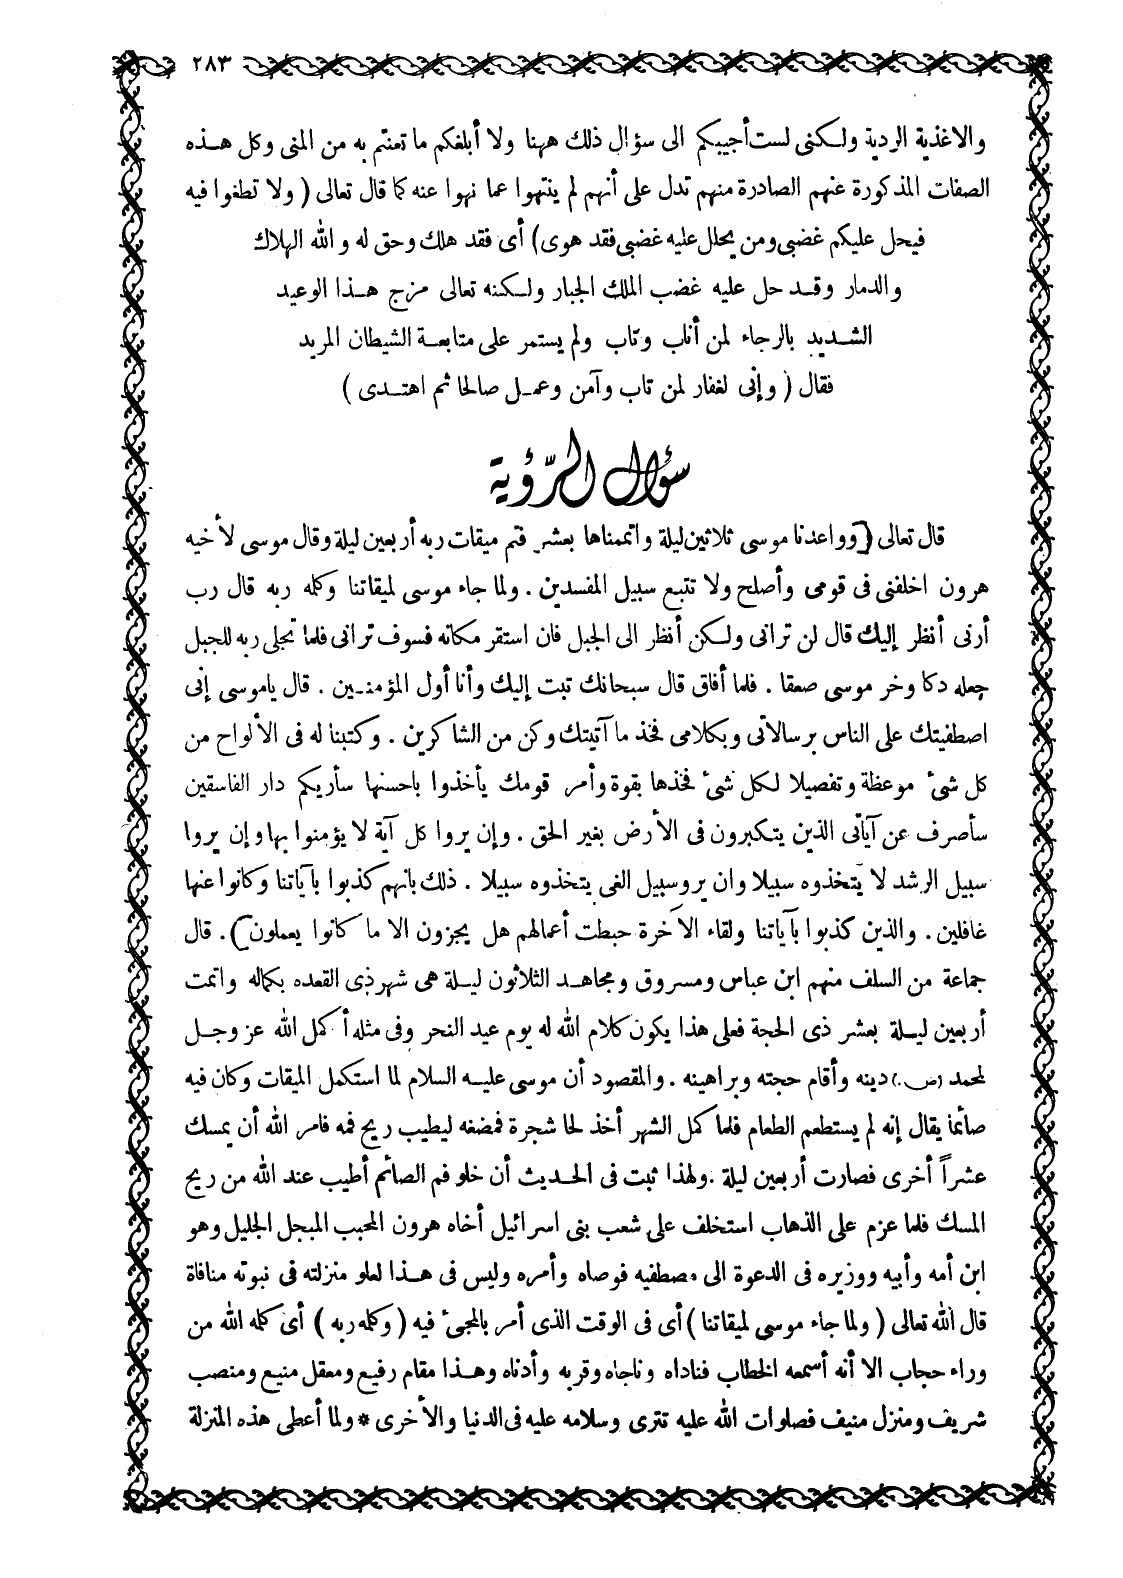 ٢٨٣
والاغذية الردية ولكنى لست أجيبكم الى سؤال ذلك ههنا ولا أبلغكم ما تعنتم به من المنى وكل هذه
الصفات المذكورة عنهم الصادرة منهم تدل على أنهم لم ينتهوا عما نهوا عنه كما قال تعالى ( ولا تطغوا فيه
فيحل عليكم غضبى ومن يحلل عليه غضبى فقد هوى) أى فقد هلك وحق له والله الهلاك
والدمار وقد حل عليه غضب الملك الجبار ولكنه تعالى مزج هذا الوعيد
الشديد بالرجاء لمن أناب وتاب ولم يستمر على متابعة الشيطان المريد
فقال ( وإنى لغفار لمن تاب وآمن وعمل صالحا ثم اهتدى )
سؤال الرّؤية
قال تعالى (وواعدنا موسى ثلاثين ليلة واتممناها بعشر فتم ميقات ربه أربعين ليلة وقال موسى لأخيه
هرون اخلفنى فى قومى وأصلح ولا تتبع سبيل المفسدين . ولما جاء موسى لميقاتنا وكلمه ربه قال رب
أرنى أنظر إليك قال لن ترانى ولكن أنظر الى الجبل فان استقر مكانه فسوف ترانى فلما تجلى ربه للجبل
جعله دكا وخر موسى صعقا . فلما أفاق قال سبحانك تبت إليك وأنا أول المؤمنين . قال ياموسى إنى
اصطفيتك على الناس برسالاتى وبكلامى فخذ ما آتيتك وكن من الشاكرين . وكتبنا له فى الألواح من
كل شئ موعظة وتفصيلا لكل شئ فخذها بقوة وأمر قومك يأخذوا باحسنها سأريكم دار الفاسقين
سأصرف عن آياتى الذين يتكبرون فى الأرض بغير الحق . وإن يروا كل آية لا يؤمنوا بها وإن يروا
سبيل الرشد لا يتخذوه سبيلا وان يروسبيل الغى يتخذوه سبيلا . ذلك بانهم كذبوا بآياتنا وكانوا عنها
غافلين . والذين كذبوا بآياتنا ولقاء الآخرة حبطت أعمالهم هل يجزون الا ما كانوا يعملون) . قال
جماعة من السلف منهم ابن عباس ومسروق ومجاهد الثلاثون ليلة هى شهر ذى القعده بكماله واتمت
أربعين ليلة بعشر ذى الحجة فعلى هذا يكون كلام الله له يوم عيد النحر وفى مثله أكمل الله عز وجل
لمحمد (ص.) دينه وأقام حجته وبراهينه . والمقصود أن موسى عليه السلام لما استكمل الميقات وكان فيه
صائما يقال إنه لم يستطعم الطعام فلما كمل الشهر أخذ لحا شجرة فمضغه ليطيب ريح فمه فامر الله أن يمسك
عشراً أخرى فصارت أربعين ليلة . ولهذا ثبت فى الحديث أن خلو فم الصائم أطيب عند الله من ريح
المسك فلما عزم على الذهاب استخلف على شعب بنى اسرائيل أخاه هرون المحبب المبجل الجليل وهو
ابن أمه وأبيه ووزيره فى الدعوة الى مصطفيه فوصاه وأمره وليس فى هذا لعلو منزلته فى نبوته منافاة
قال الله تعالى ( ولما جاء موسى لميقاتنا ) أى فى الوقت الذى أمر بالمجئ فيه ( وكلمه ربه ) أى كلمه الله من
وراء حجاب الا أنه أسمعه الخطاب فناداه وناجاه وقربه وأدناه وهذا مقام رفيع ومعقل منيع ومنصب
شريف ومنزل منيف فصلوات الله عليه تترى وسلامه عليه فى الدنيا والأخرى * ولما أعطى هذه المنزلة